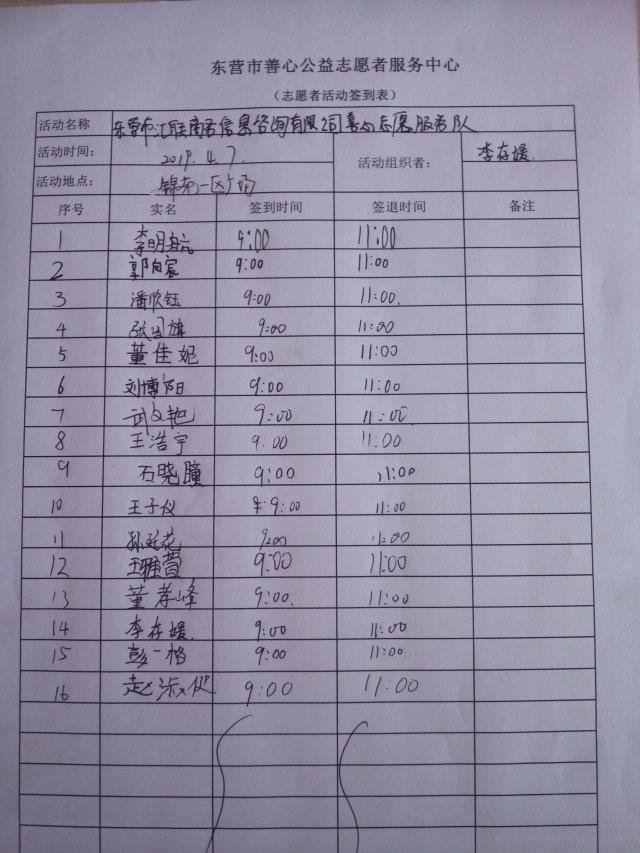 东营市善心公益志愿者服务中心
（志愿者活动签到表）
活动名称 东营市汇联商务信息咨询有限公司善与志愿服务队
活动时间： 2019.4.7. 活动组织者： 李存媛.
活动地点： 锦苑一区广场
序号 实名 签到时间 签退时间 备注
1 李明航 9:00 11:00
2 郭向宸 9:00 11:00
3 潘欣钰 9:00 11:00.
4 张国旗 9:00 11:00
5 董佳妮 9:00 11:00
6 刘博阳 9:00 11:00
7 武文艳 9:00 11:00.
8 王浩宇 9:00 11:00
9 石晓瞳 9:00 11:00
10 王子仪 9:00 11:00
11 孙廷花 9:00 11:00
12 王雅萱 9:00 11:00
13 董孝峰 9:00. 11:00
14 李存媛. 9:00 11:00
15 彭一格 9:00 11:00
16 赵 9:00 11:00